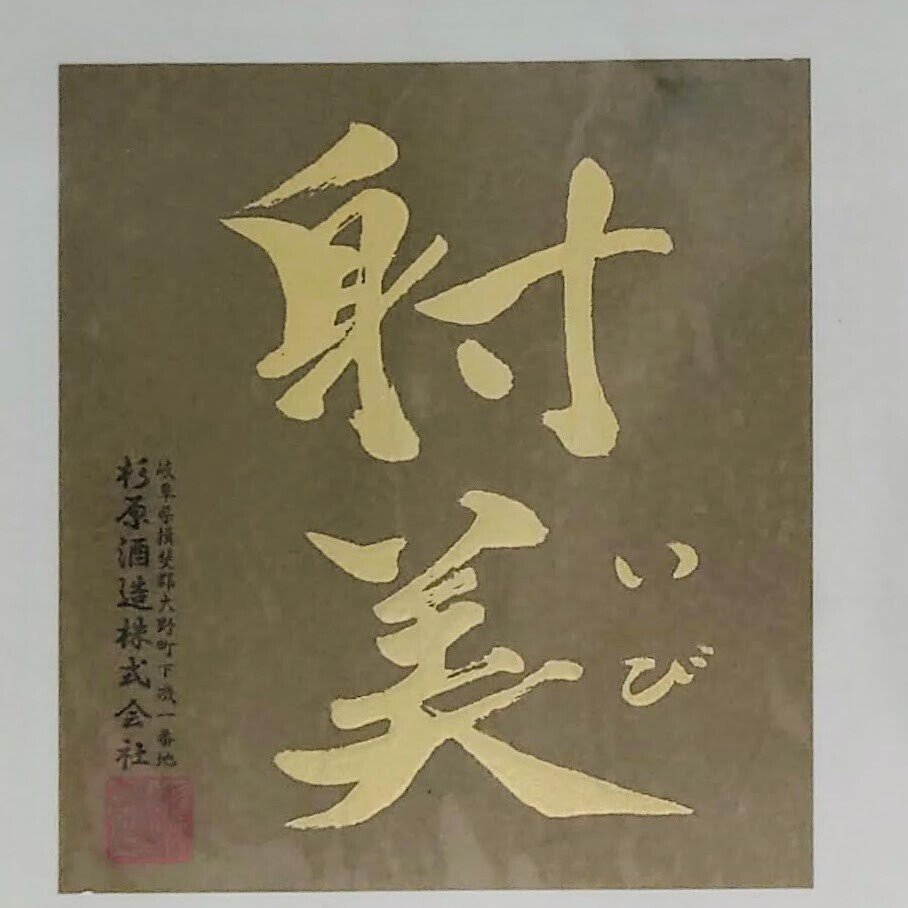 射美
いび
岐阜県揖斐郡大野町下磯一番地
杉原酒造株式会社